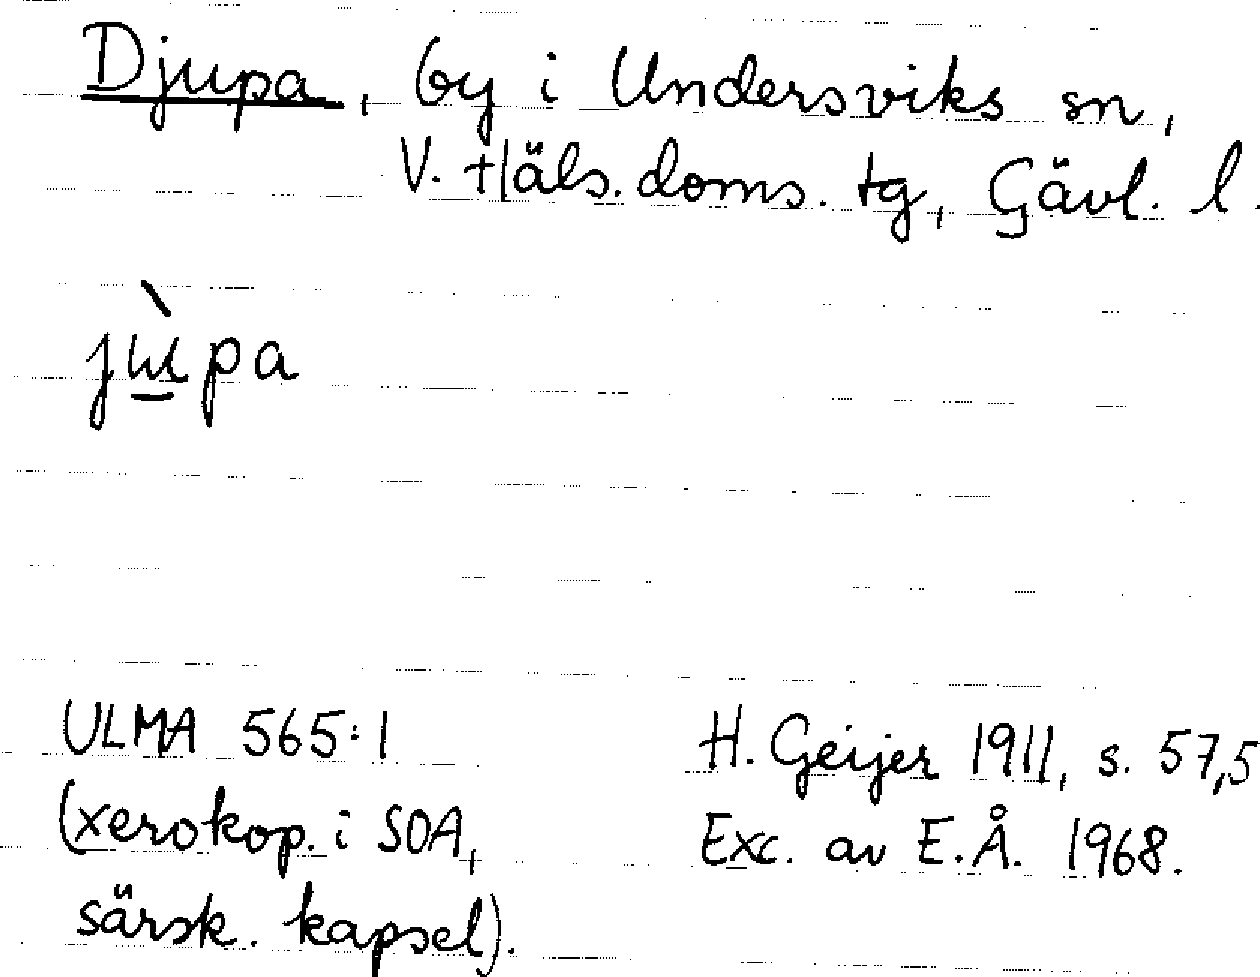 Djupa, by i Undersviks sn,
V. Häls. doms. tg, Gävl. l.
jɯ̱̀pa
ULMA 565:1
(xerokop. i SOA,
särsk. kapsel).
H. Geijer 1911, s. 57,5
Exc. av E.Å. 1968.